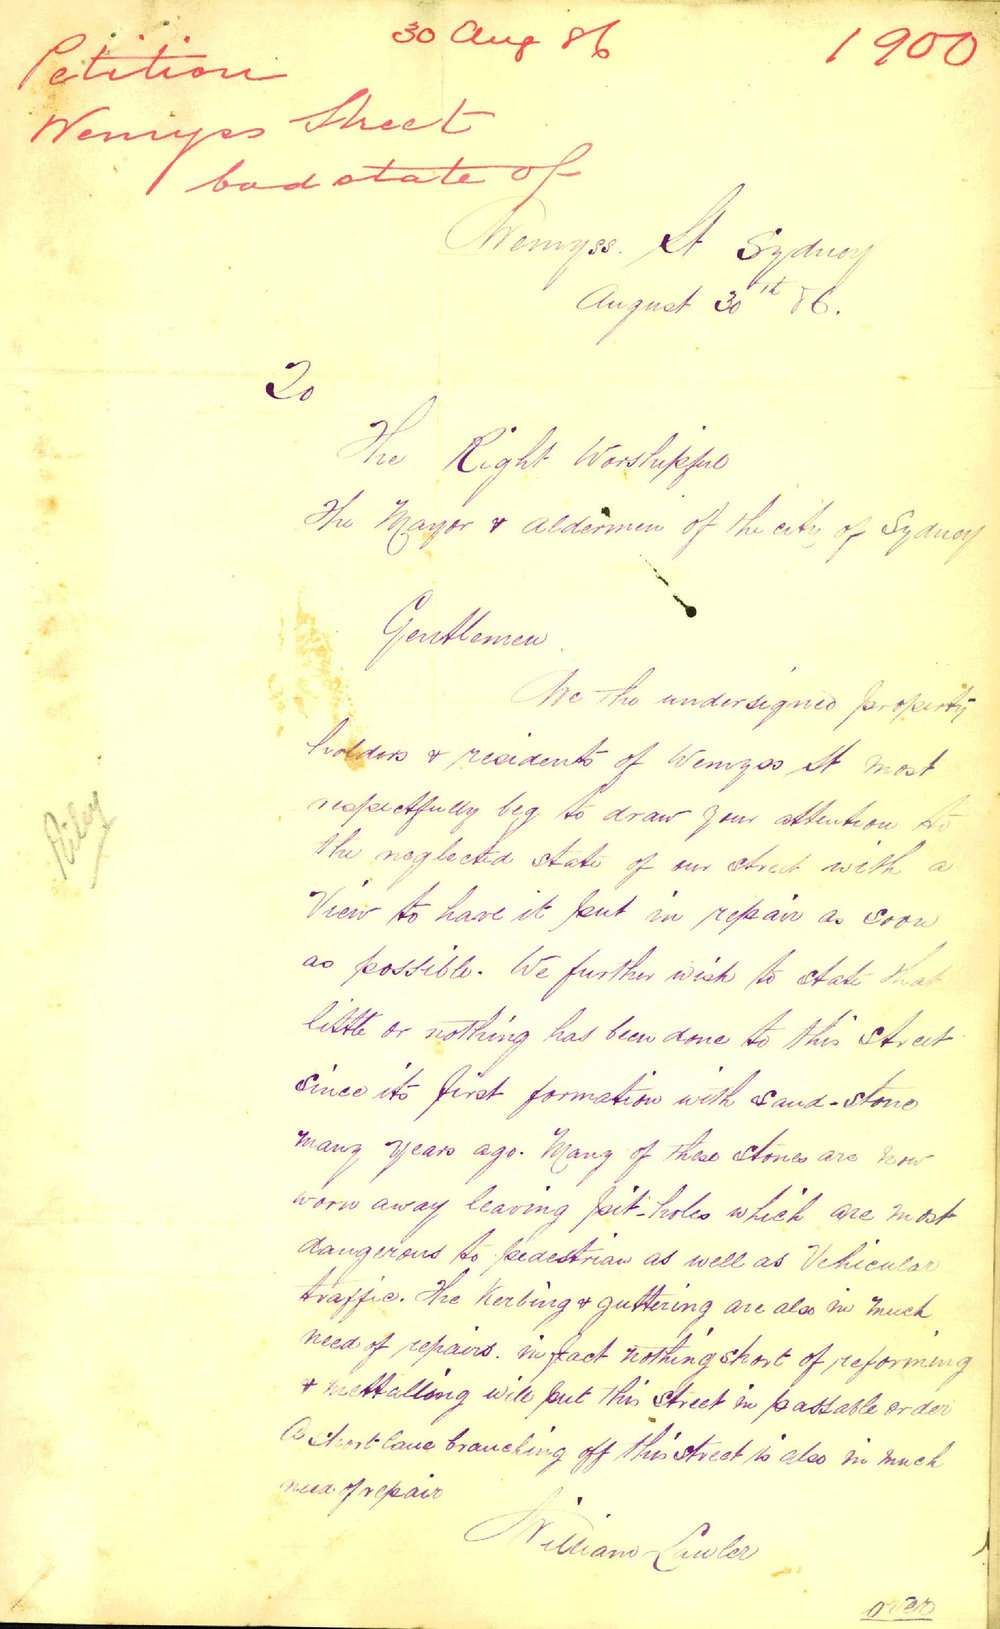 30 Aug 86
1900
Petition
Wemyss Street
bad state of
Wemyss. St Sydney
August 30th 86.
To
The Right Worshipful
The Mayor & Aldermen of the city of Sydney
Gentlemen
We the undersigned property
holders & residents of Wemyss St most
respectfully beg to draw your attention to
the neglected state of our street with a
View to have it put in repair as soon
as possible. We further wish to state that
little or nothing has been done to this street
since its first formation with sand-stone
many years ago. Many of these stones are now
worn away leaving pit-holes which are most
dangerous to pedestrian as well as Vehicular
traffic. The Kerbing & guttering are also in much
need of repairs. in fact nothing short of reforming
& mettalling will put this street in passable order
A short lane branching off this street is also in much
need of repair
William Lawler
over
Riley